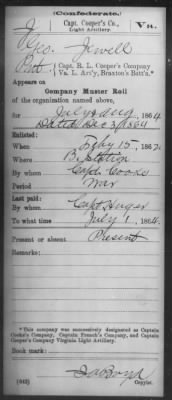 (Confederate.)
Capt. Cooper's Co.,
Light Artillery.
Va.
Geo. Jewell
Pvt, Capt. R. L. Cooper's Company
Va. L. Art'y, Braxton's Batt'n.*
Appears on
Company Muster Roll
of the organization named above,
for July & Aug, 1864
Dated Dec 31, 1864
Enlisted:
When Feby 15, 1862
Where
By whom Capt. Cooke
Period War
Last paid:
By whom Capt Hugar
To what time July 1, 1864
Present or absent Present
Remarks:
*This company was successively designated as Captain
Cooke's Company, Captain French's Company, and Captain
Cooper's Company Virginia Light Artillery.
Book mark:
(642)
Copyist.